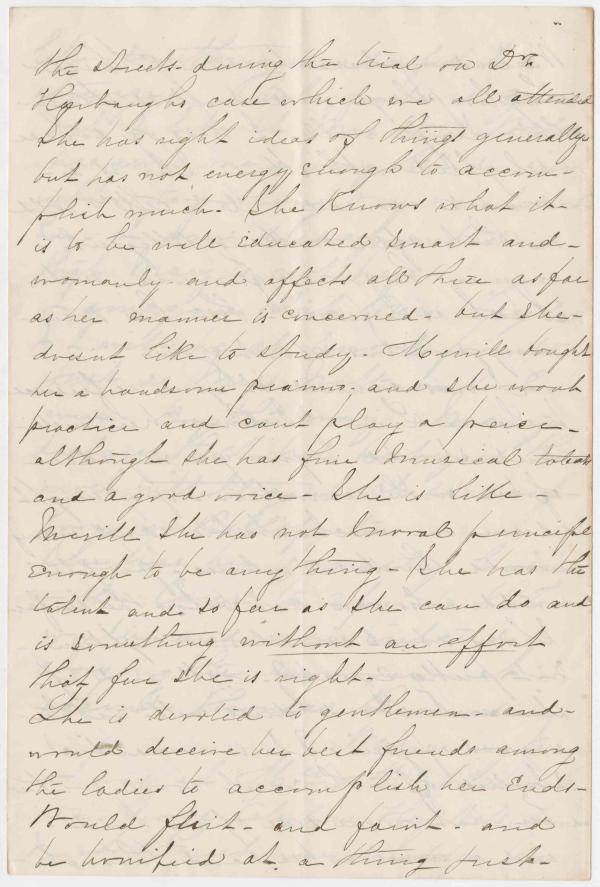 the streets during the trial on Dr.
Harbaughs case which we all attended
She has right ideas of things generally
but has not energy enough to accom-
plish much. She Knows what it
is to be well Educated Smart and
womanly and affects all three as far
as her manner is concerned - but She
doesnt like to study. Merrill bought
her a handsome pianno, and she wont
practice and cant play a peice -
although she has fine musical talent
and a good voice - She is like -
Merrill She has not moral principle
Enough to be any thing - She has the
talent and so far as she can do and
is something without an effort
that far she is right.
She is devoted to gentlemen - and
would deceive her best friends among
the ladies to accomplish her Ends -
Would flirt - and faint - and
be horrified at a thing just